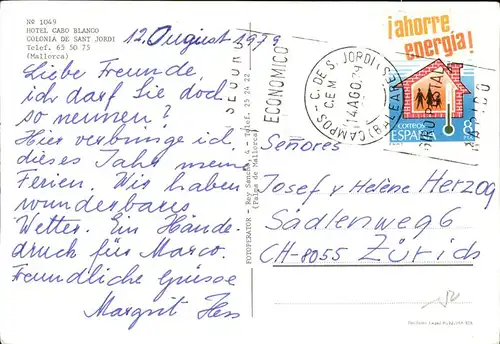 Nº 1049
HOTEL CABO BLANCO
COLONIA DE SANT JORDI
Telef. 65 50 75
(Mallorca)
12. August 1979
Liebe Freunde,
ich darf Sie doch
so nennen?
Hier verbringe ich
dieses Jahr meine
Ferien. Wir haben
wunderbares
Wetter. Ein Hände-
druck für Marco.
Freundliche Grüsse
Margrit Hess
FOTOPERATOR - Rey Sancho, 6 - Telef. 25 24 22
(Palma de Mallorca)
ECONOMICO
CAMPOS - C. DE S. JORDI (BALEARES)
C.E.M.
14 AGO. 79
¡ahorre
energía!
correos
ESPAÑA
8
Señores
Josef y Helène Herzog
Sädlenweg 6
CH-8055 Zürich